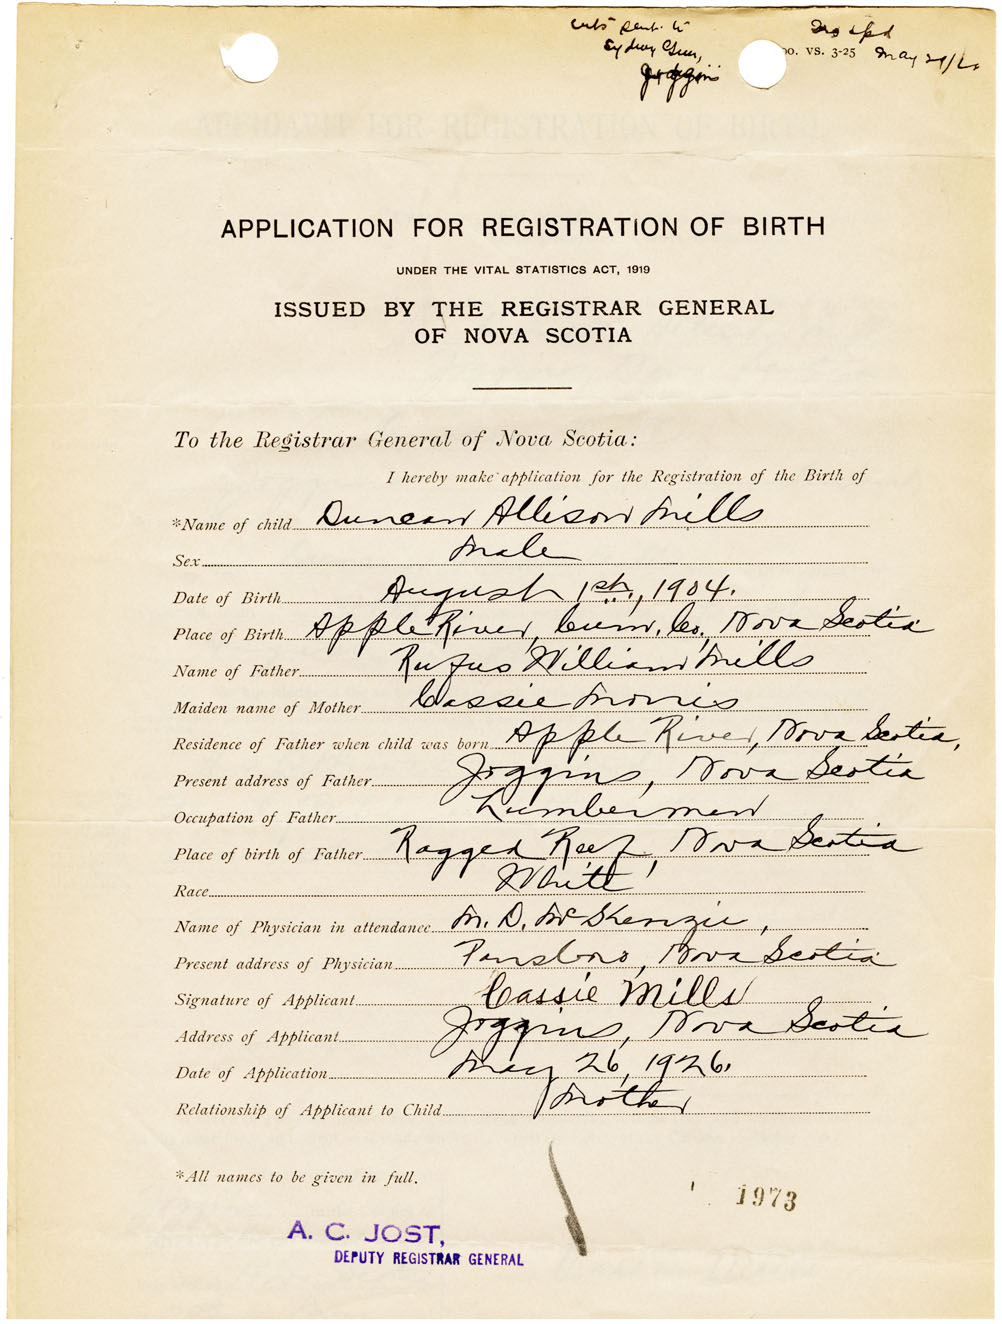 sent to
Sydney
Joggins
vs. 3-25 May
APPLICATION FOR REGISTRATION OF BIRTH
UNDER THE VITAL STATISTICS ACT, 1919
ISSUED BY THE REGISTRAR GENERAL
OF NOVA SCOTIA
To the Registrar General of Nova Scotia:
I hereby make application for the Registration of the Birth of
*Name of child Duncan Allison Mills
Sex Male
Date of Birth August 1st, 1904.
Place of Birth Apple River, Cum. Co. Nova Scotia
Name of Father Rufus William Mills
Maiden name of Mother Cassie Morris
Residence of Father when child was born Apple River, Nova Scotia,
Present address of Father Joggins, Nova Scotia
Occupation of Father Lumberman
Place of birth of Father Ragged Reef, Nova Scotia
Race White
Name of Physician in attendance M. D. McKenzie,
Present address of Physician Parrsboro, Nova Scotia
Signature of Applicant Cassie Mills
Address of Applicant Joggins, Nova Scotia
Date of Application May 26, 1926.
Relationship of Applicant to Child Mother
*All names to be given in full.
1973
A. C. JOST,
DEPUTY REGISTRAR GENERAL